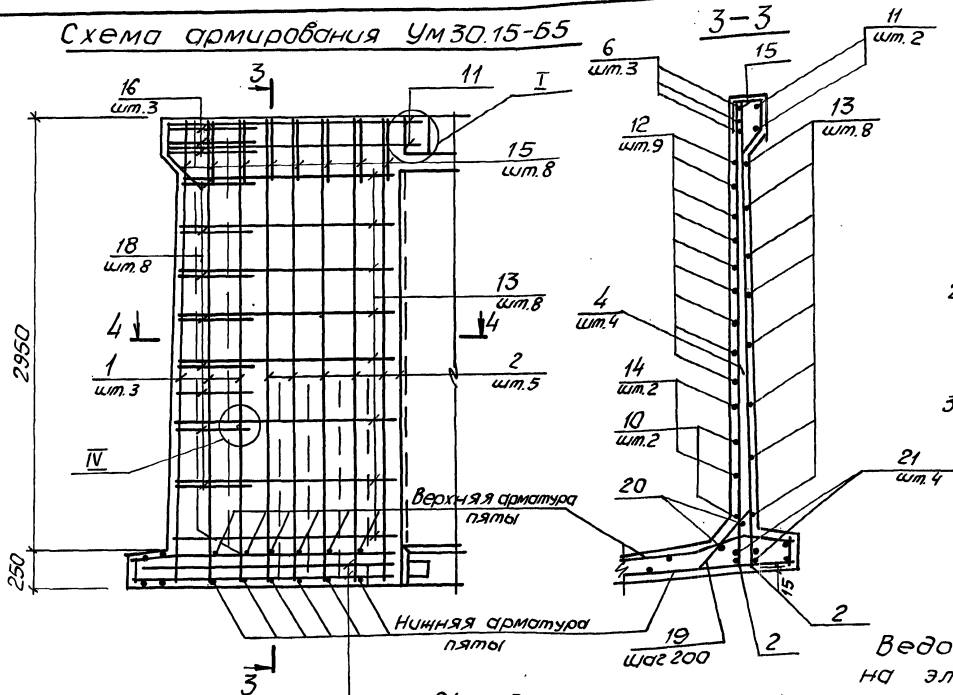 Схема армирования Ум 30.15-Б5
3-3
3
16
шт.3
11
I
15
шт.8
18
шт.8
13
шт.8
4
4
1
шт.3
2
шт.5
IV
2950
250
Верхняя арматура
пяты
Нижняя арматура
пяты
3
6
шт.3
15
11
шт.2
12
шт.9
13
шт.8
4
шт.4
14
шт.2
10
шт.2
20
21
шт.4
15
19
шаг 200
2
2
Ведо
на эл